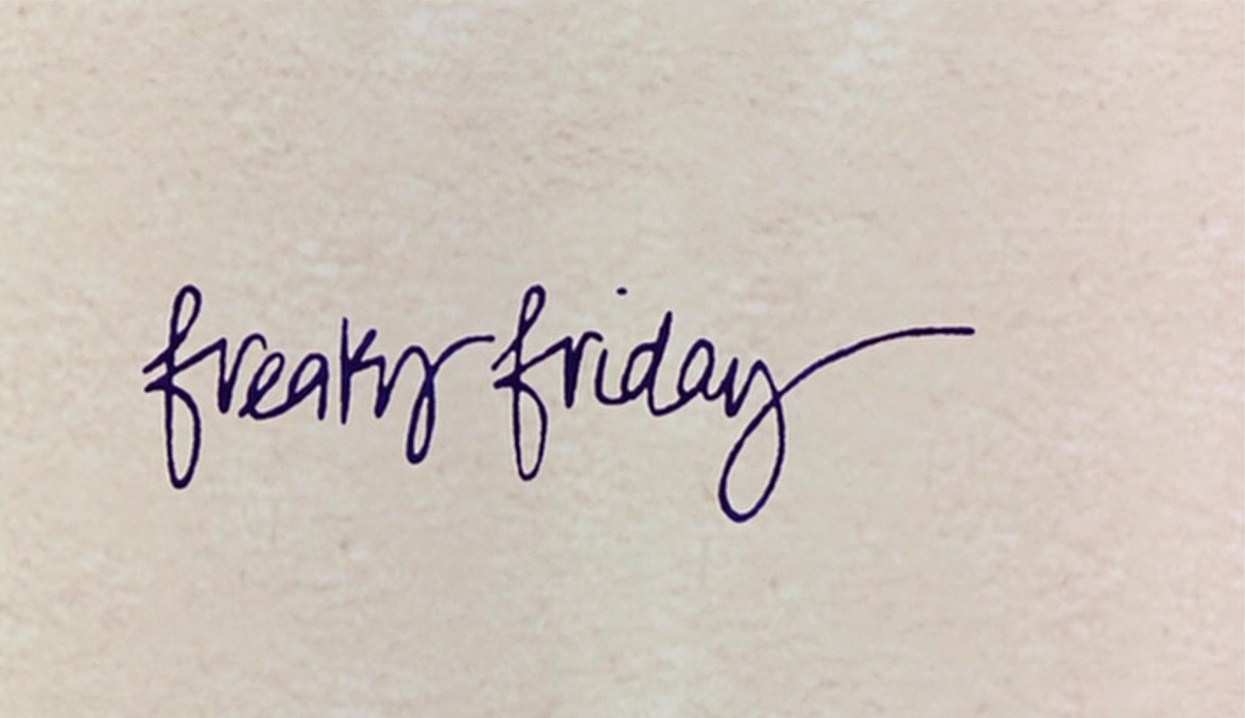 freaky friday